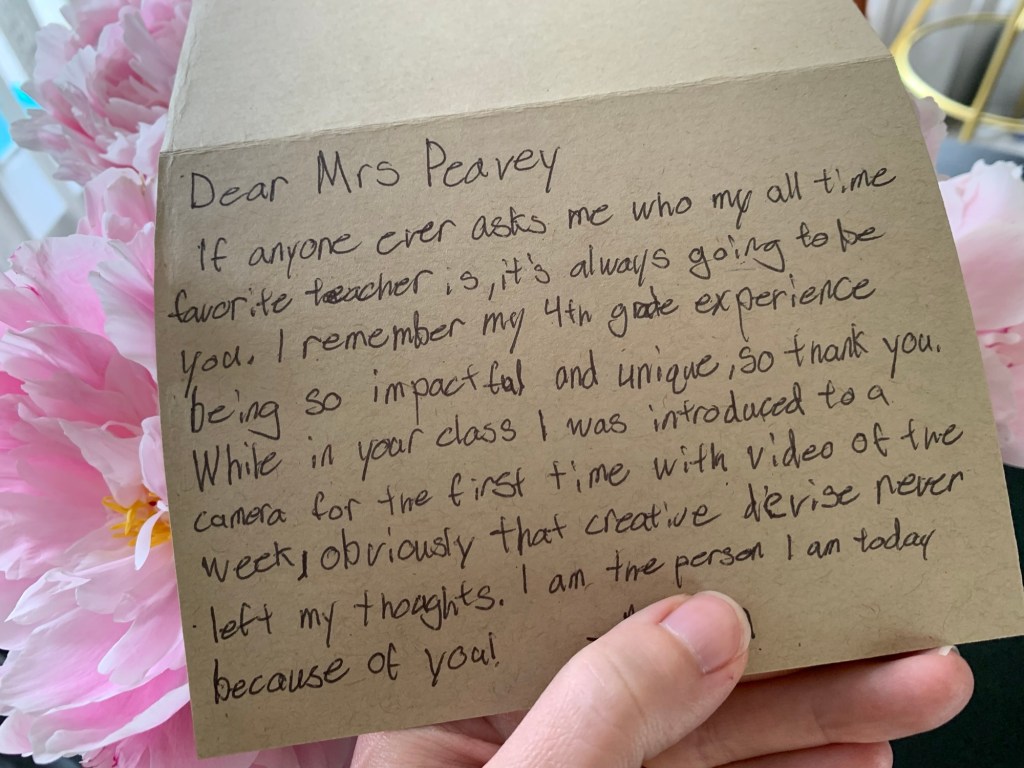 Dear Mrs Peavey
If anyone ever asks me who my all time
favorite teacher is, it's always going to be
you. I remember my 4th grade experience
being so impactful and unique, so thank you.
While in your class I was introduced to a
camera for the first time with video of the
week, obviously that creative devise never
left my thoughts. I am the person I am today
because of you!